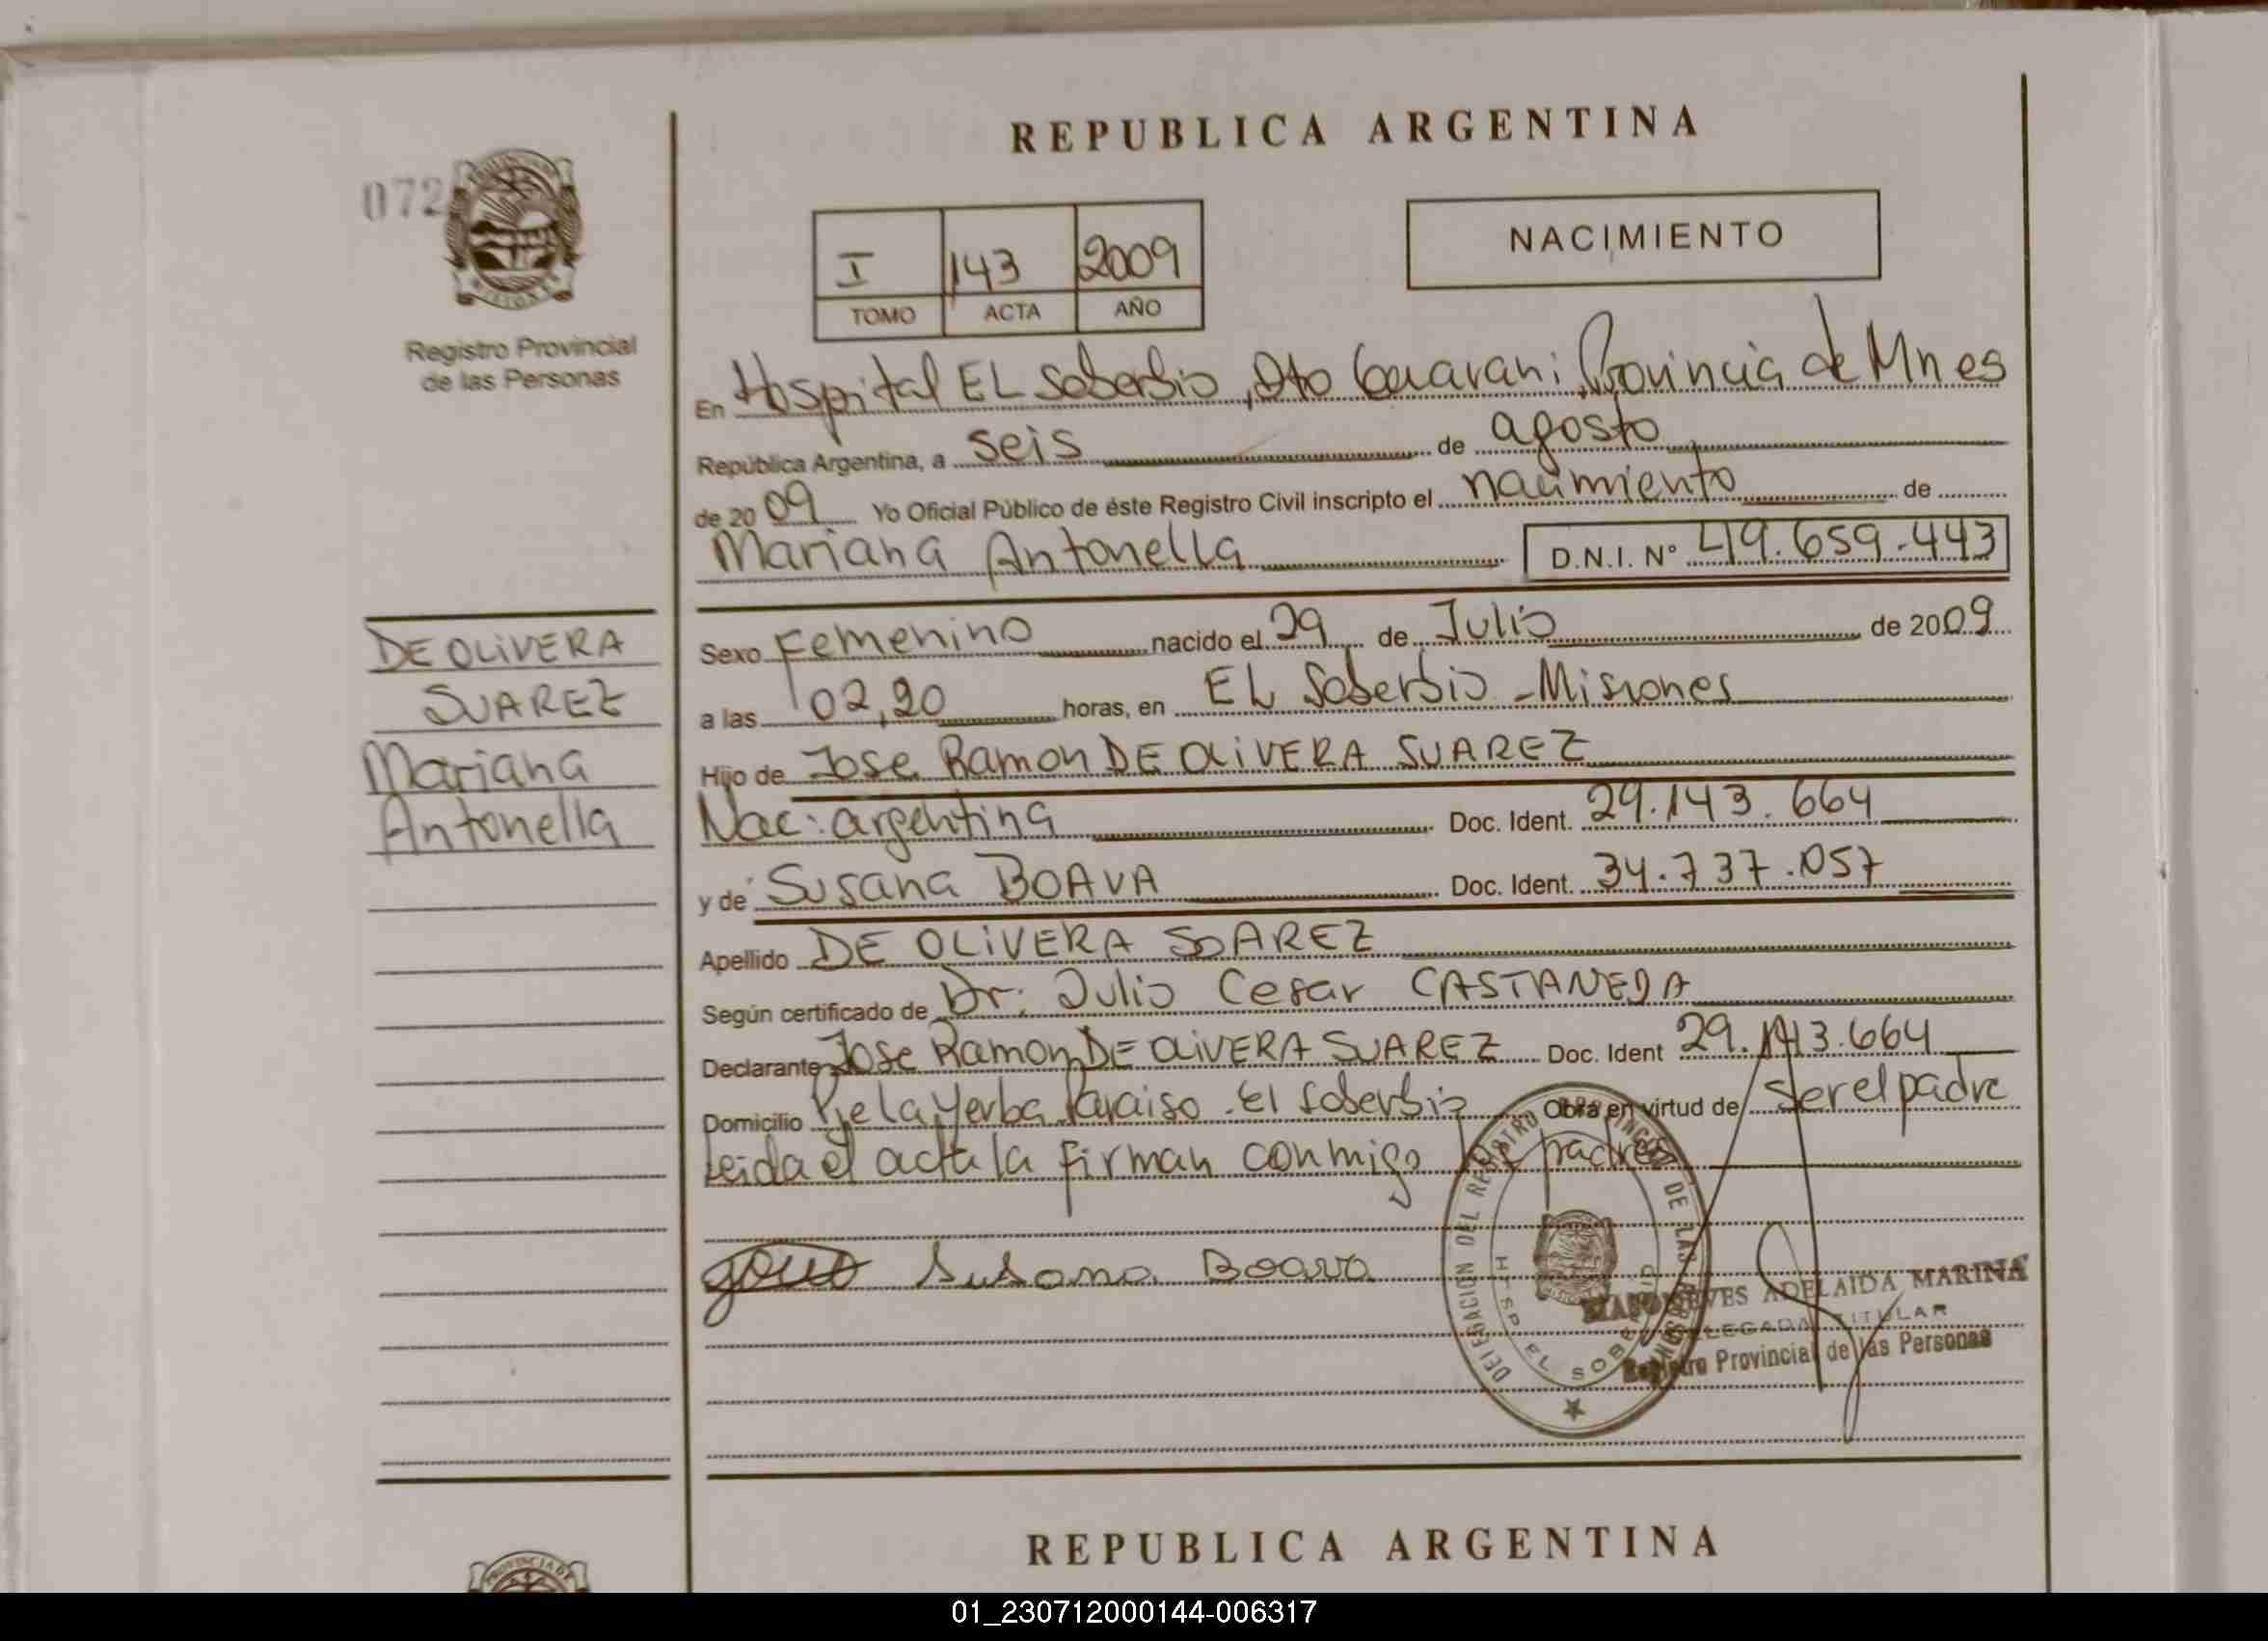 REPUBLICA ARGENTINA
072
I 143 2009
TOMO ACTA AÑO
NACIMIENTO
Registro Provincial
de las Personas
En Hospital EL Soberbio, Dto Guarani, Provincia de Mnes
República Argentina, a seis de agosto
de 2009 Yo Oficial Público de éste Registro Civil inscripto el nacimiento de
Mariana Antonella D.N.I. Nº 49.659.443
DE OLIVERA
SUAREZ
Mariana
Antonella
Sexo Femenino nacido el 29 de Julio de 2009
a las 02,20 horas, en EL Soberbio - Misiones
Hijo de Jose Ramon DE OLIVERA SUAREZ
Nac: argentina Doc. Ident. 29.143.664
y de Susana BOAVA Doc. Ident. 34.737.057
Apellido DE OLIVERA SUAREZ
Según certificado de Dr: Julio Cesar CASTANEDA
Declarante Jose Ramon DE OLIVERA SUAREZ Doc. Ident 29.143.664
Domicilio Pje la Yerba Paraiso - El Soberbio Obra en virtud de ser el padre
Leida el acta la firman conmigo los padres
Susana Boava
DELEGACION DEL REGISTRO PROVINCIAL DE LAS PERSONAS
EL SOBERBIO
ADELAIDA MARINA
DELEGADA TITULAR
Registro Provincial de las Personas
REPUBLICA ARGENTINA
PROVINCIA DE
01_230712000144-006317